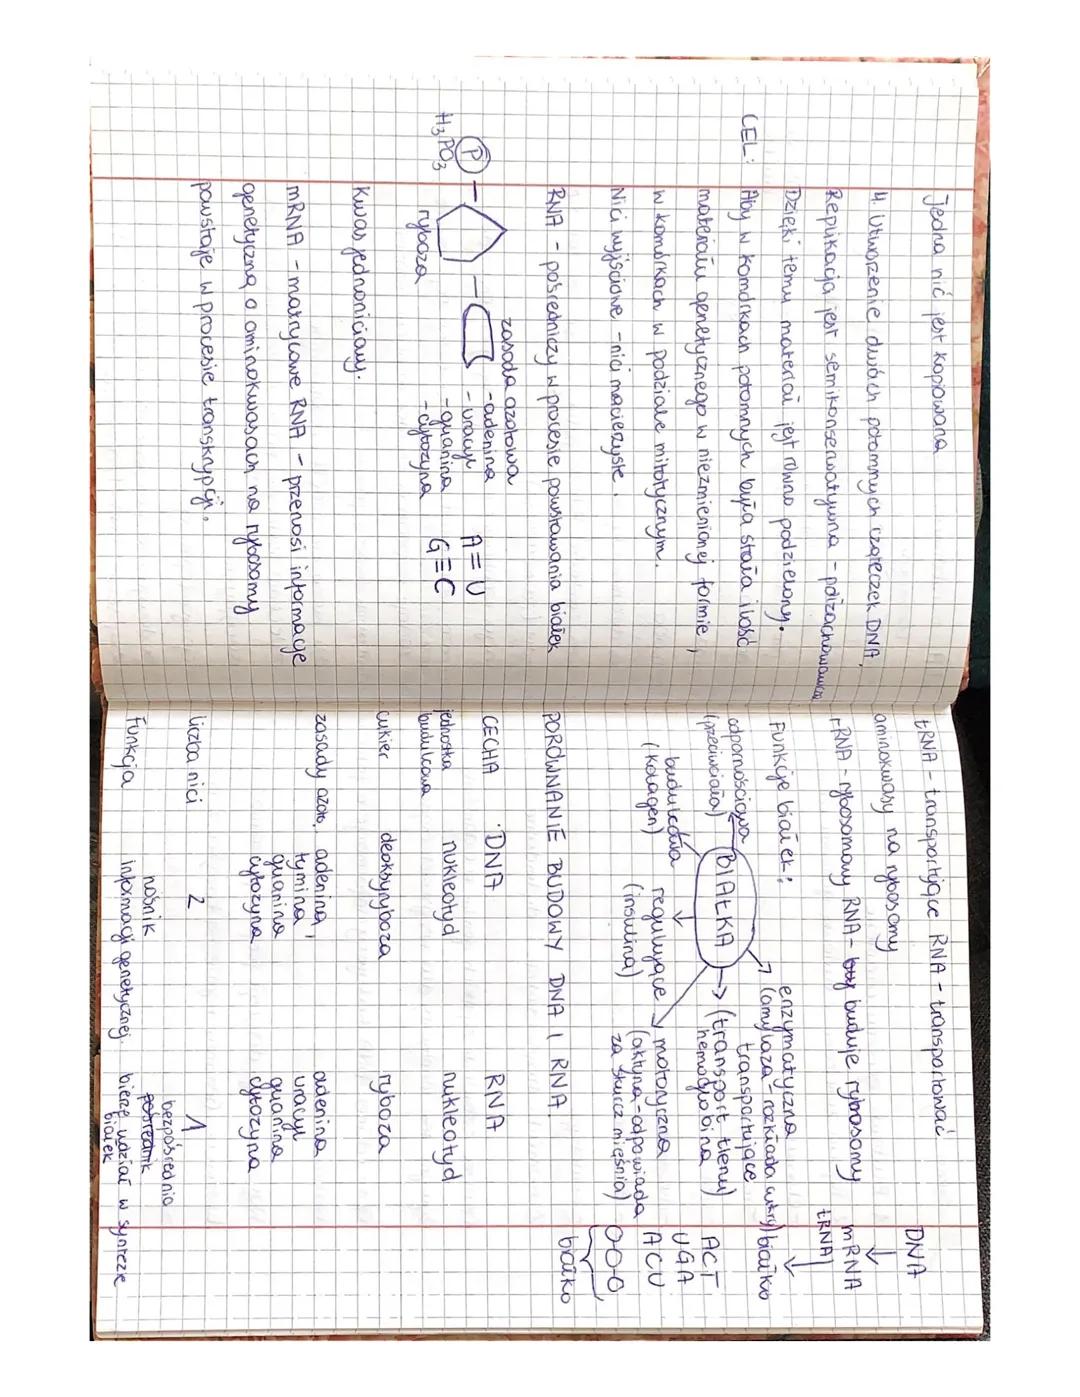 jedna nić jest kopiowana
4. Utworzenie dwóch potomnych cząteczek DNA.
Replikacja jest semikonserwatywna - półzachowawcza
Dzięki temu materiał jest równo podzielony.
CEL: Aby w komórkach potomnych była stała ilość
materiału genetycznego w niezmienionej formie,
w komórkach w podziale mitotycznym.
Nici wyjściowe - nici macierzyste.
RNA - pośredniczy w procesie powstawania białek
zasada azotowa
P
H3PO3
ryboza
-adenina
-uracyl
-guanina
-cytozyna
A=U
G≡C
Kwas jednoniciowy.
mRNA - matrycowe RNA - przenosi informacje
genetyczną o aminokwasach na rybosomy
powstaje w procesie transkrypcji.
tRNA - transportujące RNA - transportować
aminokwasy na rybosomy
rRNA - rybosomowy RNA - buduje rybosomy
DNA
↓
mRNA
tRNA
↓
białko
Funkcje białek:
BIAŁKA
odpornościowa
(przeciwciała)
budulcowa
(kolagen)
regulujące
(insulina)
enzymatyczna
(amylaza - rozkłada cukry)
transportujące
(transport tlenu)
hemoglobina
motoryczna
(aktyna - odpowiada
za skurcz mięśnia)
ACT
UGA
ACU
białko
PORÓWNANIE BUDOWY DNA I RNA
CECHA DNA RNA
jednostka budulcowa nukleotyd nukleotyd
cukier deoksyryboza ryboza
zasady azoto. adenina, adenina
tymina uracyl
guanina guanina
cytozyna cytozyna
liczba nici 2 1
Funkcja nośnik informacji genetycznej. bezpośrednio
pośrednik
bierze udział w syntezie
białek